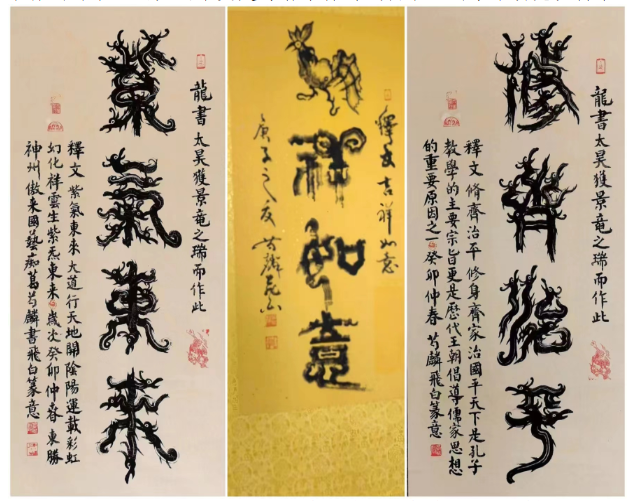 龍書 太昊獲景竜之瑞而作此
紫氣東來
釋文 紫氣東來 大道行天地開陰陽運載彩虹
幻化祥雲生紫炁東来 歲次癸卯仲春 東勝
神州傲来國藝痴葛芍麟書飛白篆意
釋文吉祥如意
吉祥如意
庚子之夏芍麟
龍書 太昊獲景竜之瑞而作此
脩齊治平
釋文 脩齊治平 修身齊家治國平天下是孔子
教學的主要宗旨更是歷代王朝倡導儒家思想
的重要原因之一 癸卯仲春 芍麟飛白篆意